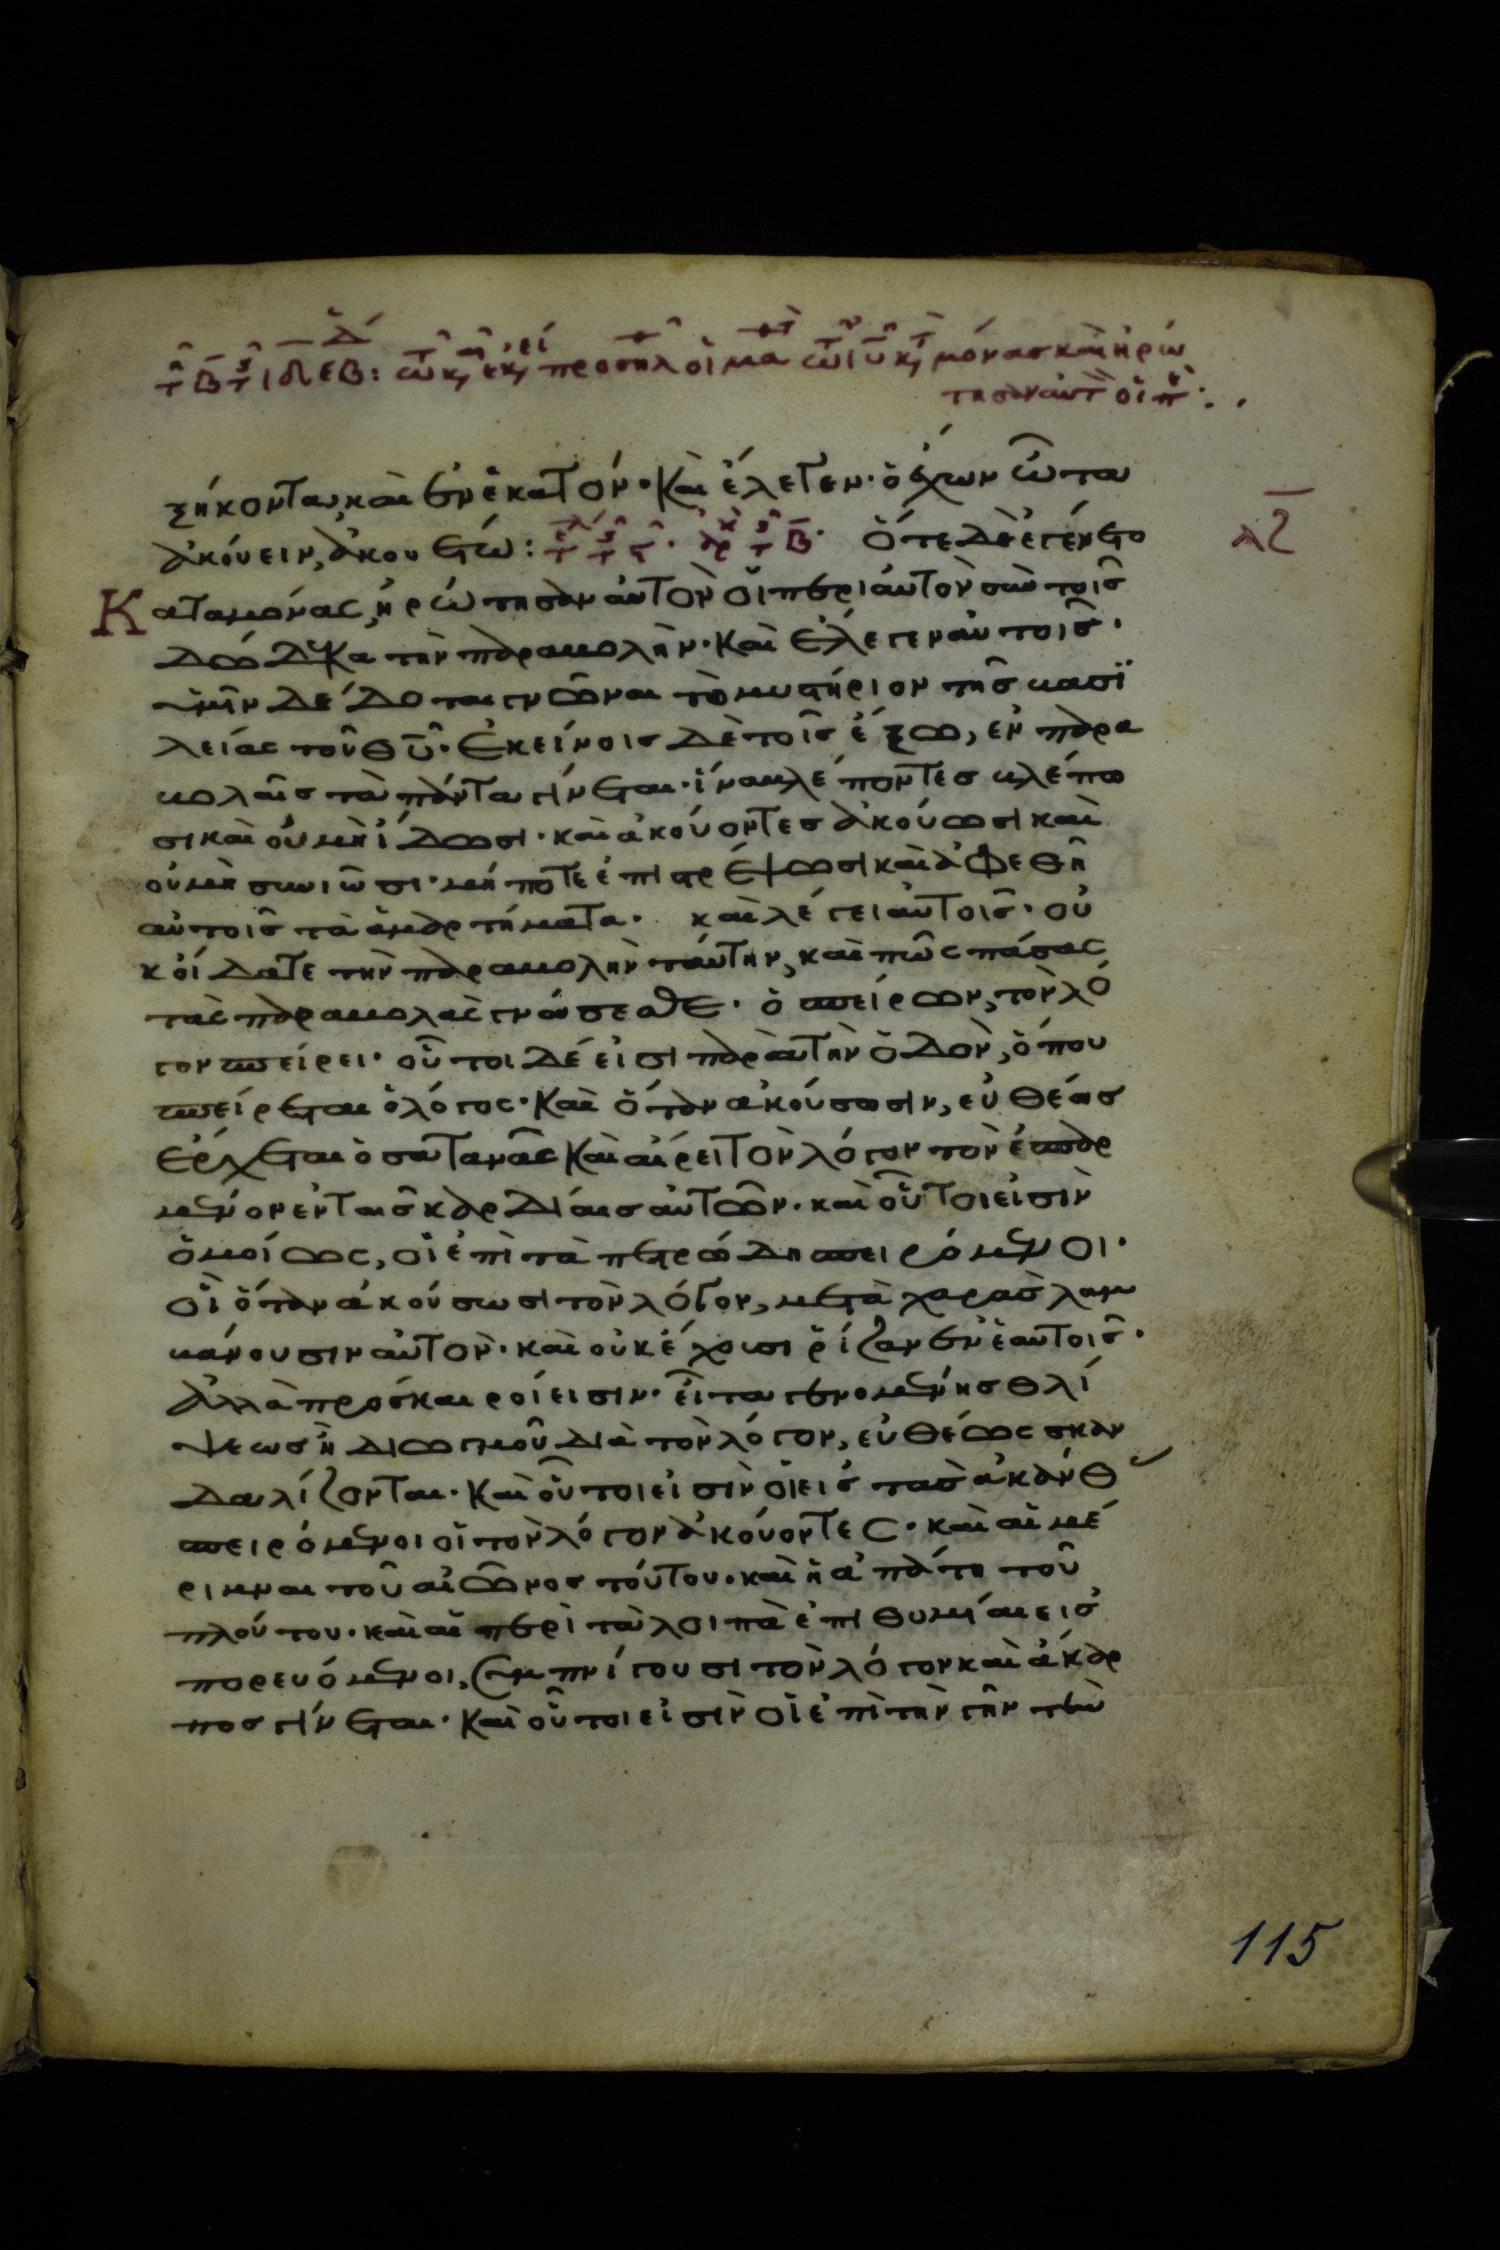 προσῆλ οἱ μα κ μόνας καὶ ἠρώ
τησαν αὐτ οἱ π
ξήκοντα, καὶ ἐν ἑκατόν· Καὶ ἔλεγεν· ὁ ἔχων ὦτα
ἀκούειν, ἀκουέτω: Ὅτε δὲ ἐγένετο
λς
Καταμόνας, ἠρώτησαν αὐτὸν οἱ περὶ αὐτὸν σὺν τοῖς
δώδεκα τὴν παραβολήν· Καὶ ἔλεγεν αὐτοῖς·
ὑμῖν δέδοται γνῶναι τὸ μυστήριον τῆς βασι
λείας τοῦ θυ· Ἐκείνοις δὲ τοῖς ἔξω, ἐν παρα
βολαῖς τὰ πάντα γίνεται· ἵνα βλέποντες βλέπω
σι καὶ οὐ μὴ ἴδωσι· καὶ ἀκούοντες ἀκούωσι καὶ
οὐ μὴ συνιῶσι· μήποτε ἐπιστρέψωσι καὶ ἀφεθῆ
αὐτοῖς τὰ ἁμαρτήματα· καὶ λέγει αὐτοῖς· οὐ
κ οἴδατε τὴν παραβολὴν ταύτην, καὶ πῶς πάσας
τὰς παραβολὰς γνώσεσθε· ὁ σπείρων, τὸν λό
γον σπείρει· οὗτοι δέ εἰσι παρὰ τὴν ὁδὸν, ὅπου
σπείρεται ὁ λόγος· Καὶ ὅταν ἀκούσωσιν, εὐθέως
ἔρχεται ὁ σατανᾶς Καὶ αἴρει τὸν λόγον τὸν ἐσπαρ
μένον ἐν ταῖς καρδίαις αὐτῶν· καὶ οὗτοι εἰσὶν
ὁμοίως, οἱ ἐπὶ τὰ πετρώδη σπειρόμενοι·
οἳ ὅταν ἀκούσωσι τὸν λόγον, μετὰ χαρᾶς λαμ
βάνουσιν αὐτὸν· καὶ οὐκ ἔχουσι ῥίζαν ἐν ἑαυτοῖς·
ἀλλὰ πρόσκαιροί εἰσιν· εἶτα γενομένης θλί
ψεως ἢ διωγμοῦ διὰ τὸν λόγον, εὐθέως σκαν
δαλίζονται· Καὶ οὗτοι εἰσὶν οἱ εἰς τὰς ἀκάνθ
σπειρόμενοι οἱ τὸν λόγον ἀκούοντες· καὶ αἱ μέ
ριμναι τοῦ αἰῶνος τούτου· καὶ ἡ ἀπάτη τοῦ
πλούτου· καὶ αἱ περὶ τὰ λοιπὰ ἐπιθυμίαι εἰσ
πορευόμενοι, συμπνίγουσι τὸν λόγον καὶ ἄκαρ
πος γίνεται· Καὶ οὗτοι εἰσὶν οἱ ἐπὶ τὴν γῆν τὴν
115